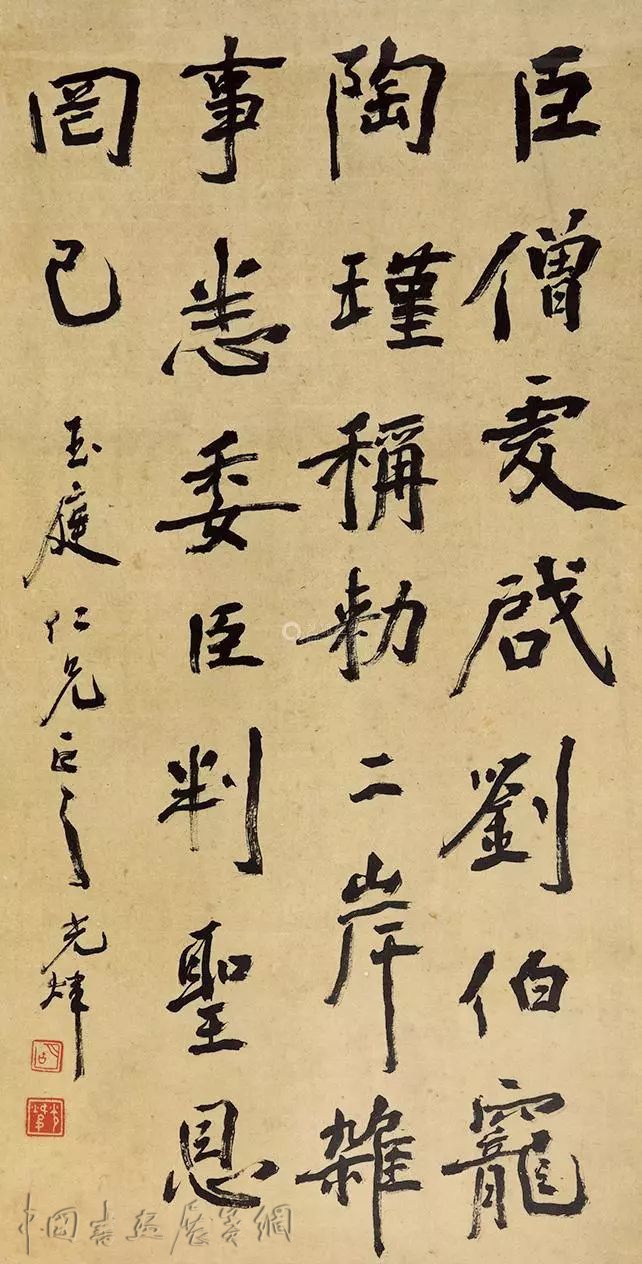 臣僧虔啓劉伯寵
陶瑾稱勅二岸雜
事悉委臣判聖恩
罔已
玉庭仁兄正之 光煒
中國書畫展賽網